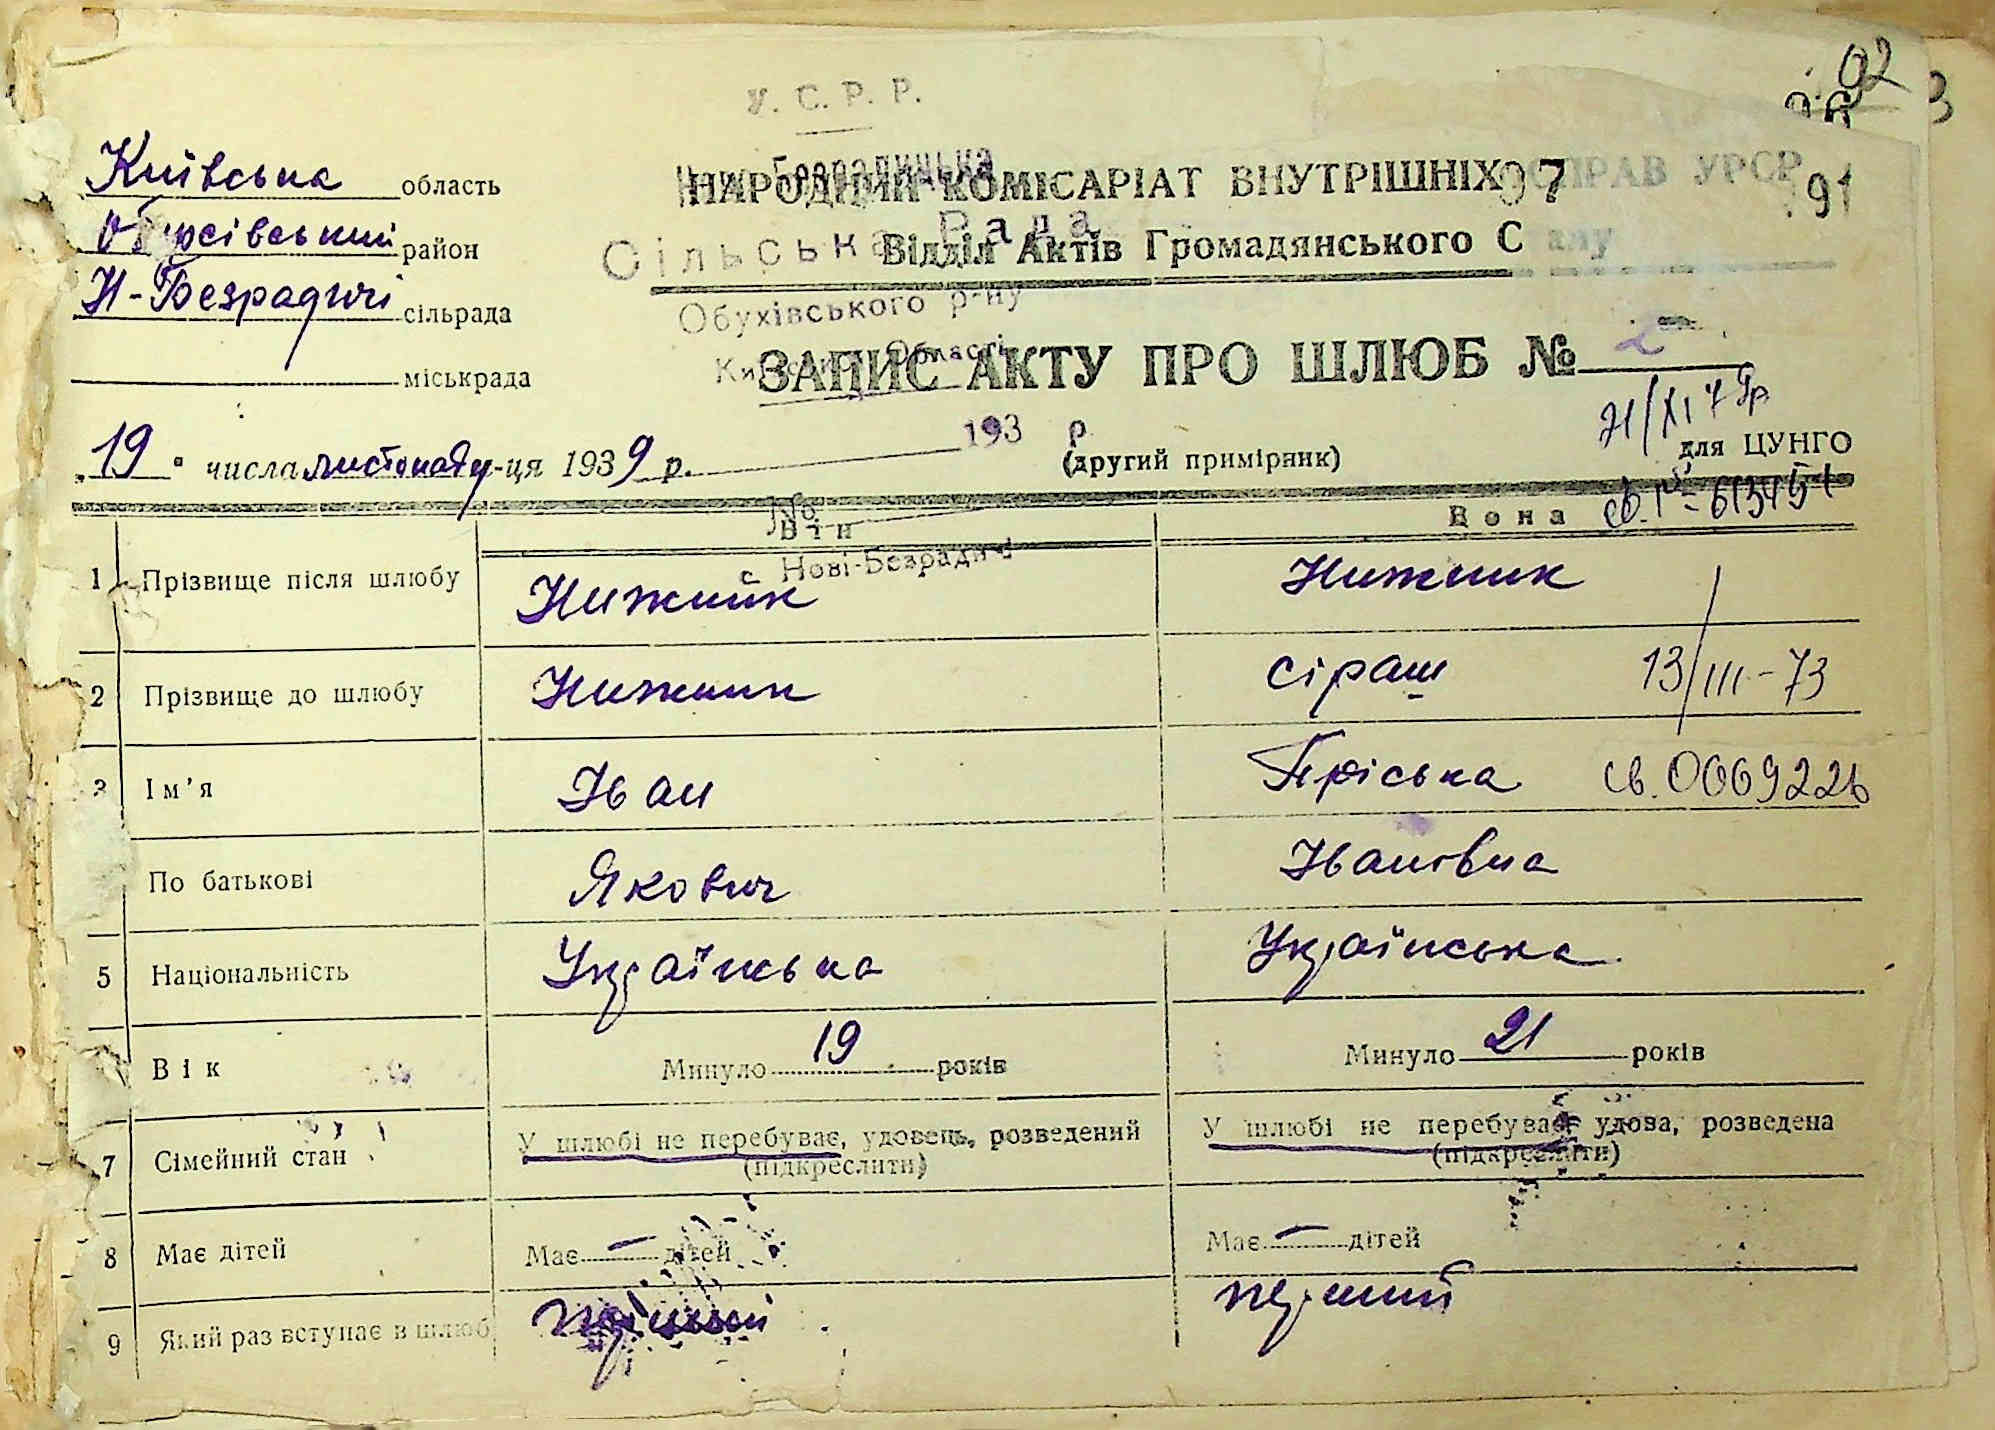 У. С. Р. Р.
Київська область
Обухівський район
Н-Безрадичі сільрада
міськрада
Ново-Безрадицька
Сільська Рада
Обухівського р-ну
Київської Області
193 р.
№
с. Нові-Безрадичі
НАРОДНИЙ КОМІСАРІАТ ВНУТРІШНІХ СПРАВ УРСР
97
191
92
Відділ Актів Громадянського Стану
ЗАПИС АКТУ ПРО ШЛЮБ № 2
"19" числа листопаду-ця 1939 р.
(другий примірник)
для ЦУНГО
Він
Вона
1 Прізвище після шлюбу Нижник Нижник
2 Прізвище до шлюбу Нижник Сіраш 13/III-73
3 Ім'я Іван Пріська св. 0069226
По батькові Якович Івановна
5 Національність Українська Українська
Вік Минуло 19 років Минуло 21 років
7 Сімейний стан У шлюбі не перебуває, удовець, розведений (підкреслити) У шлюбі не перебуває, удова, розведена (підкреслити)
8 Має дітей Має — дітей Має — дітей
9 Який раз вступає в шлюб перший перший